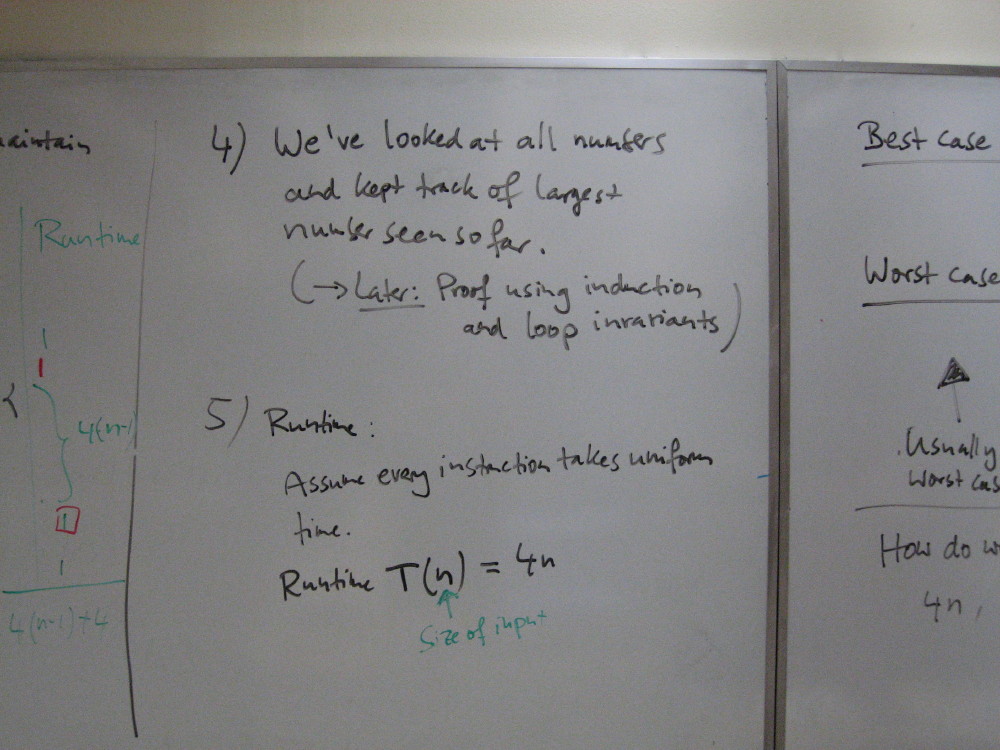 Runtime
1
1
4(n-1)
1
1
4(n-1)+4
4) We've looked at all numbers
and kept track of largest
number seen so far.
(→ Later: Proof using induction
and loop invariants)
5) Runtime:
Assume every instruction takes uniform
time.
Runtime T(n) = 4n
Size of input
Best case
Worst case
Usually
worst cas
How do w
4n,